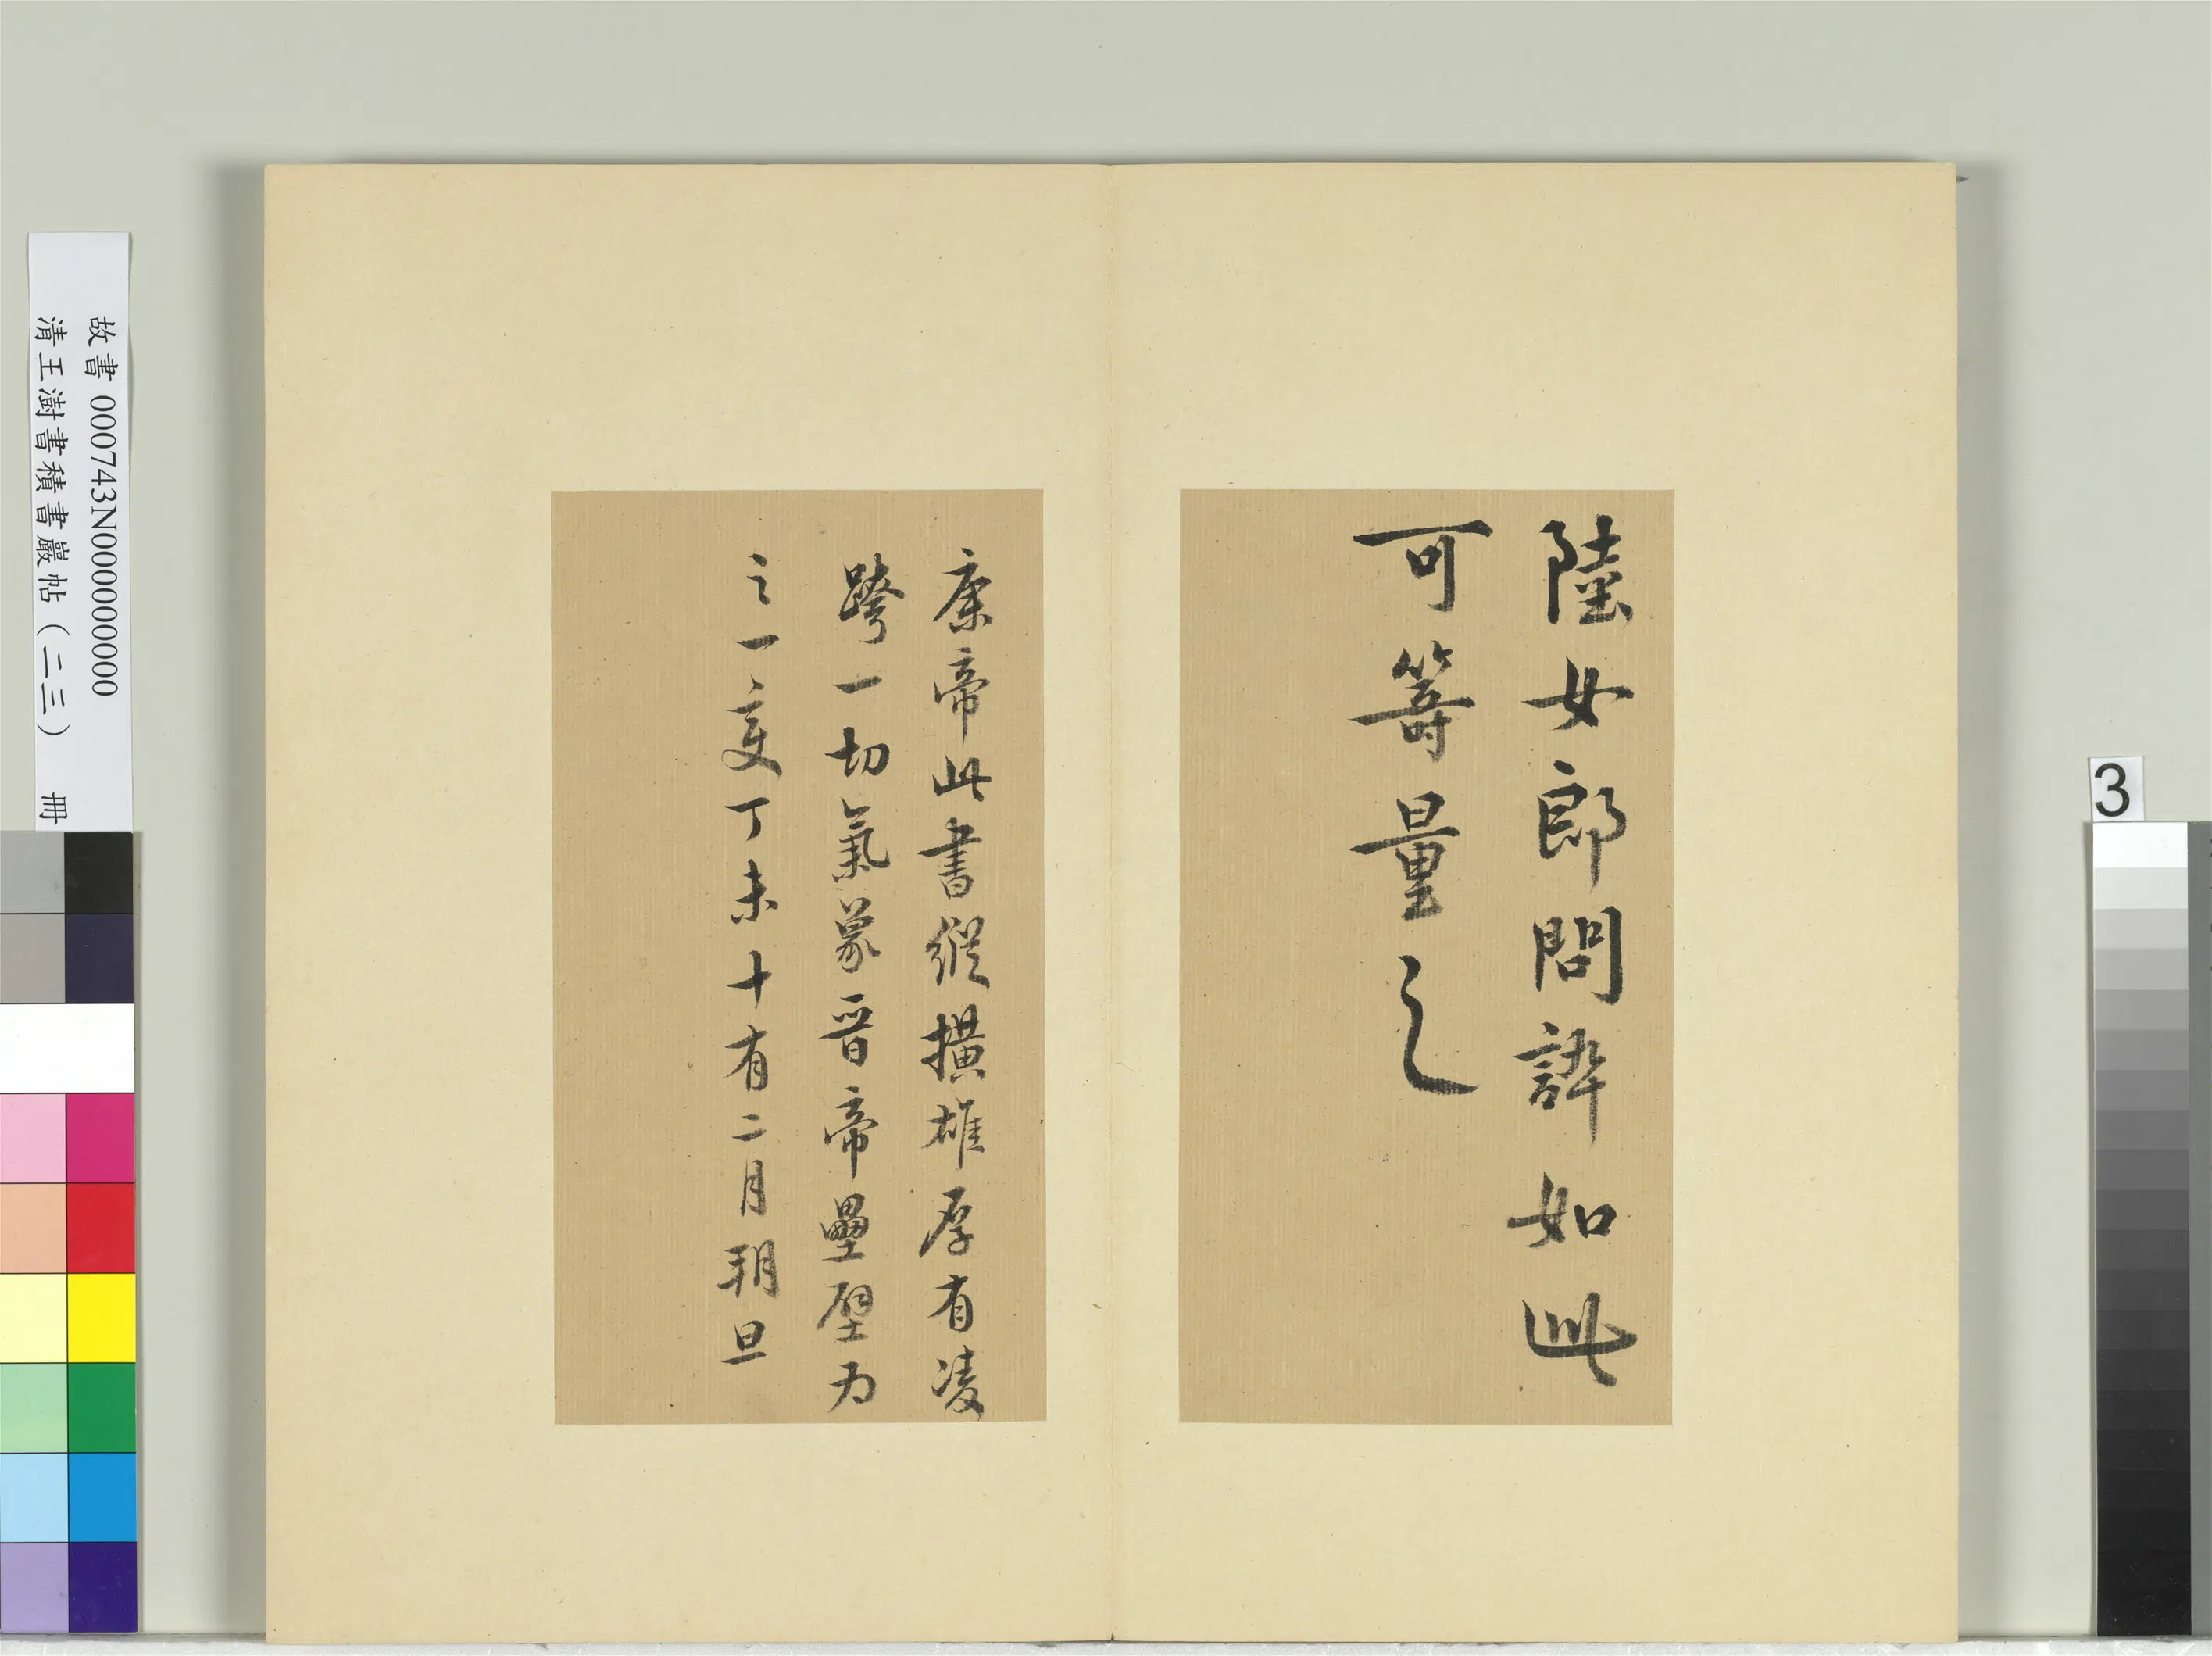 陸女郎問訃如此
可籌量之
康帝此書縱撗雄厚有凌
跨一切氣象晉帝壘壁為
之一變丁未十有二月朔旦
故書 000743N000000000
清王澍書積書巖帖（二三） 冊
3